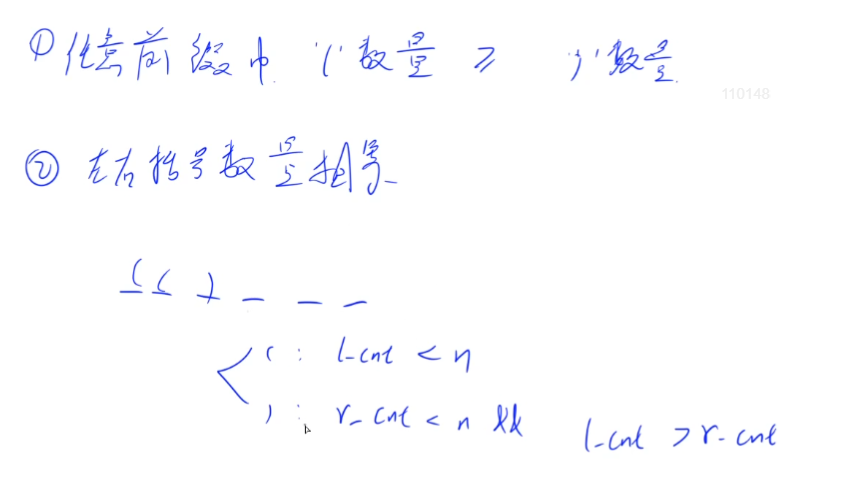 ① 任意前缀中 '(' 数量 ≥ ')' 数量.
110148
② 左右括号数量相等
( ( ) _ _ _
( : l_cnt < n
) : r_cnt < n && l_cnt > r_cnt